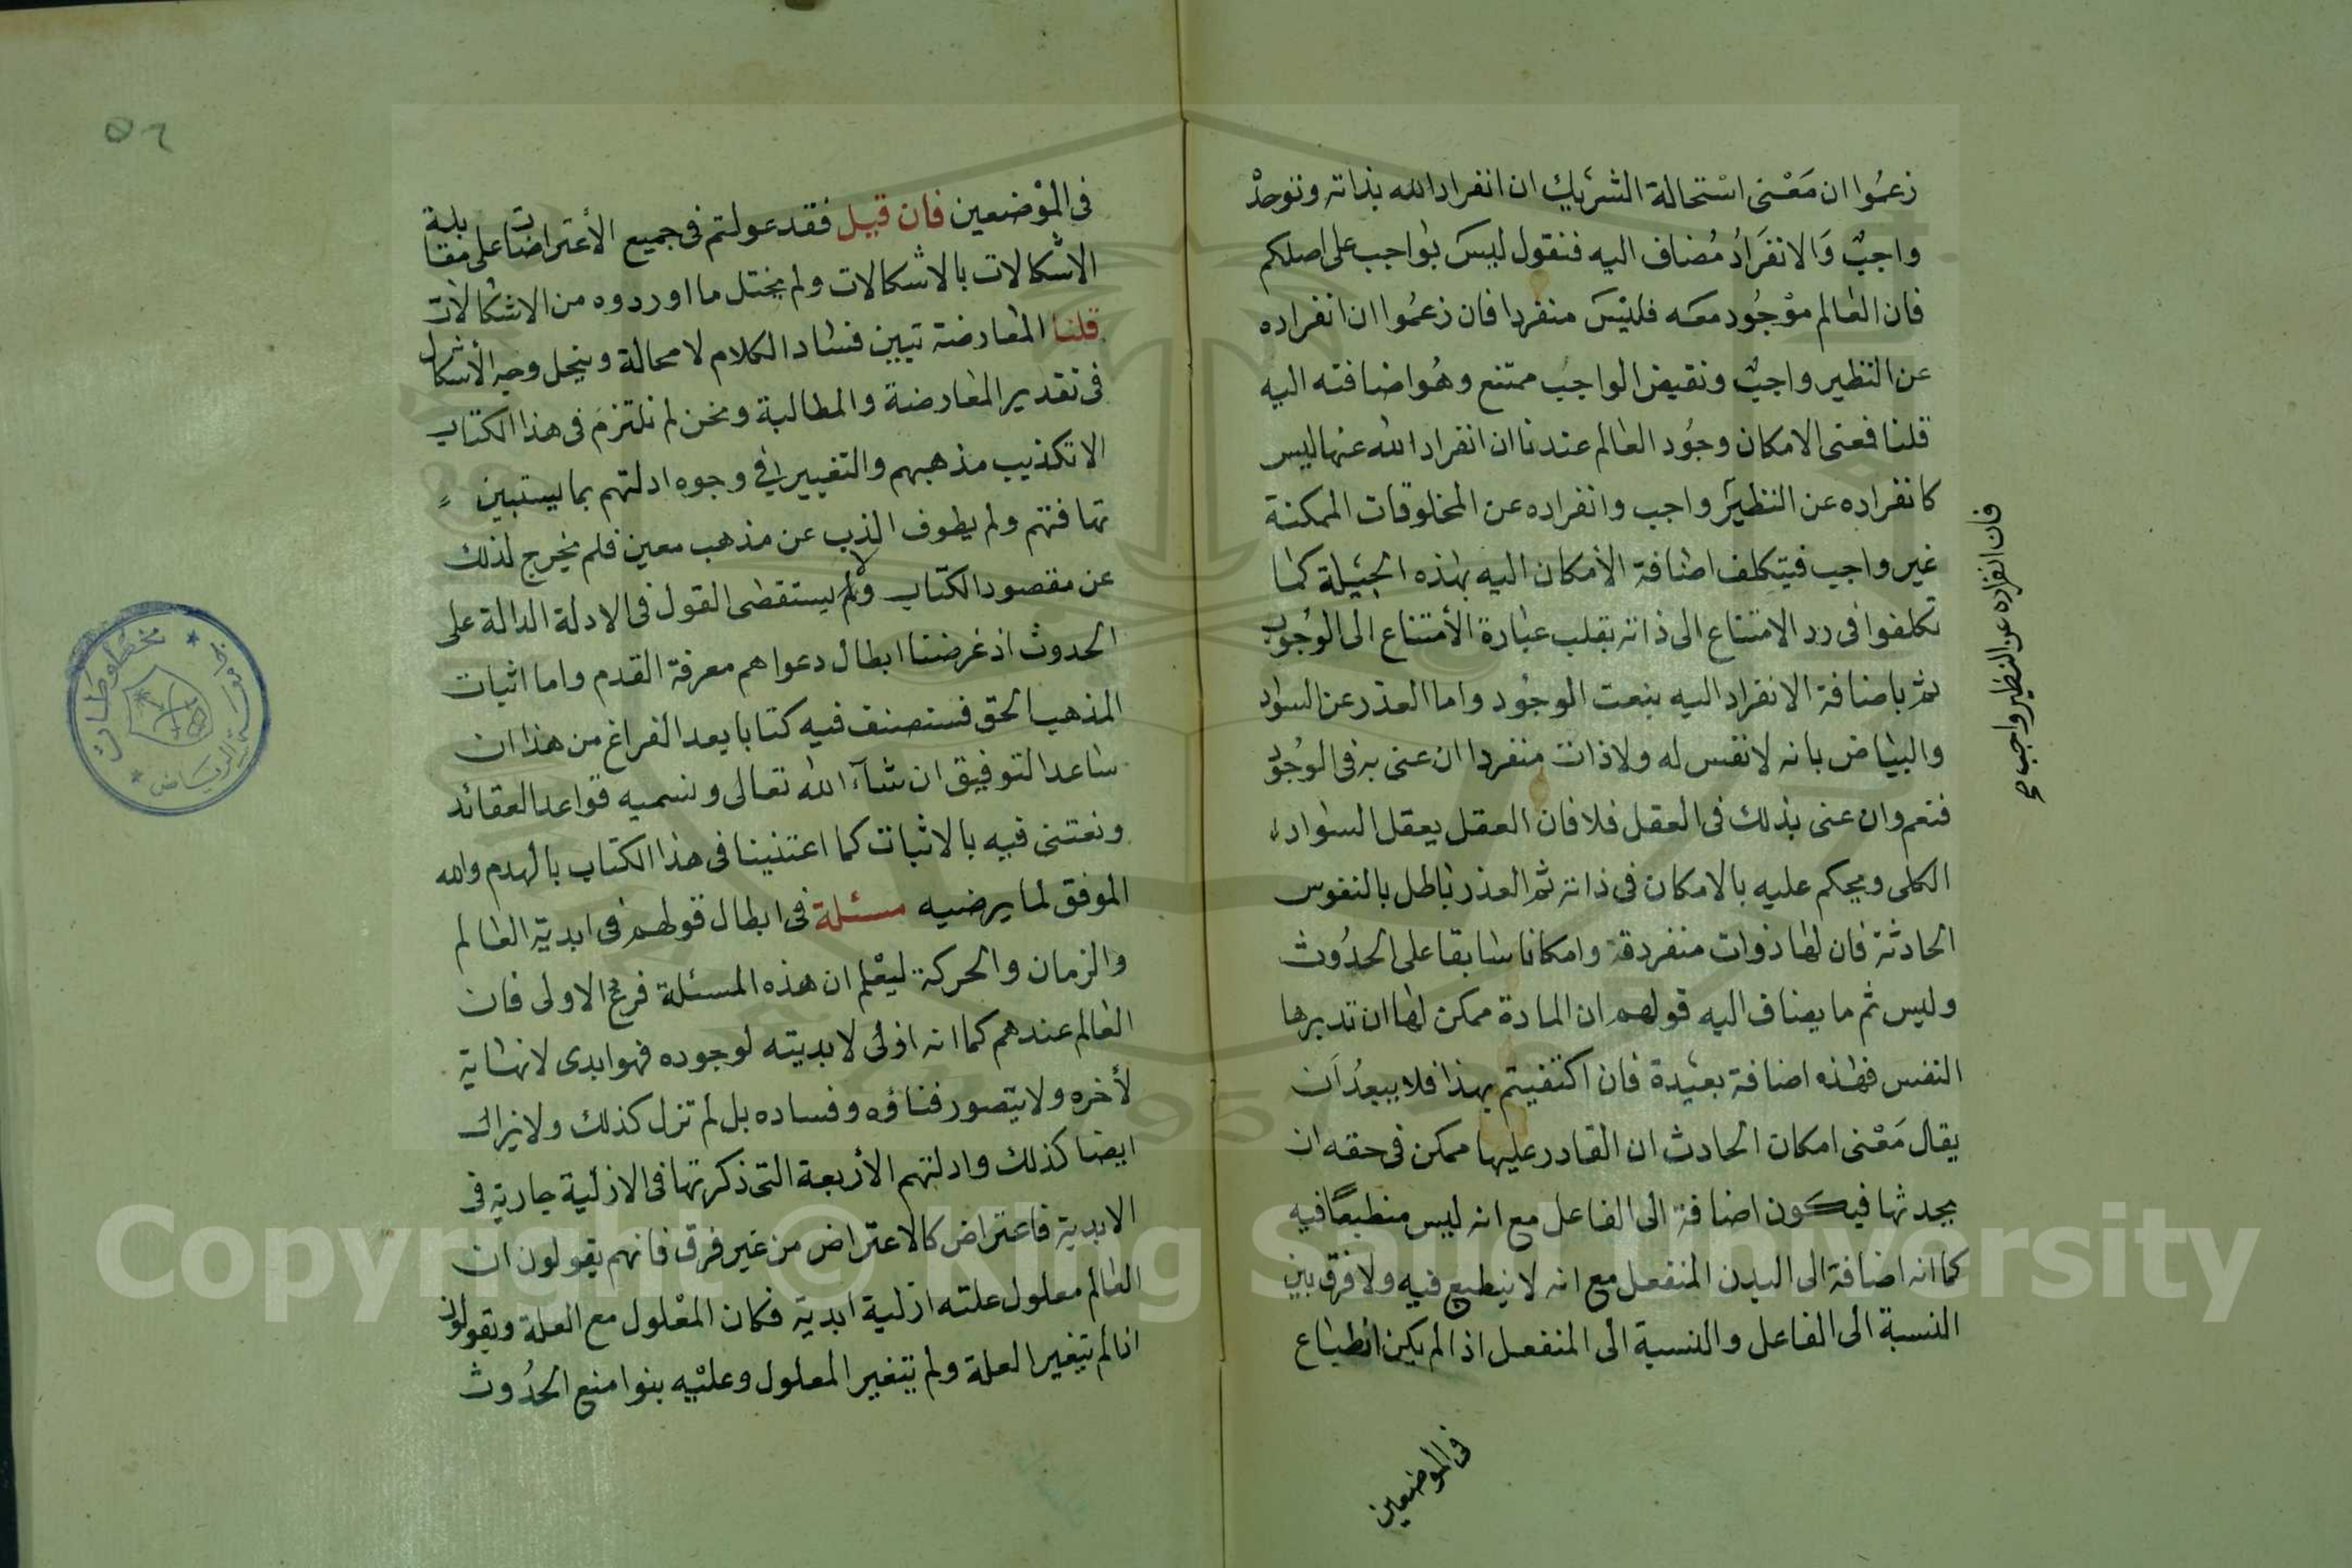 زعموا ان معنى استحالة الشريك ان انفراد الله بذاته وتوحده
واجب والانفراد مضاف اليه فنقول ليس بواجب على اصلكم
فان العالم موجود معه فليس منفردا فان زعموا ان انفراده
عن النظير واجب ونقيض الواجب ممتنع وهو اضافته اليه
قلنا فعنى الامكان وجود العالم عندنا ان انفراد الله عنها ليس
كانفراده عن النظير واجب وانفراده عن المخلوقات الممكنة
غير واجب فيتكلف اضافة الأمكان اليه بهذه الحيلة كما
تكلفوا فى رد الامتناع الى ذاته بقلب عبارة الأمتناع الى الوجوب
ثم باضافة الانفراد اليه بنعت الوجود واما العذر عن السواد
والبياض بانه لا نفس له ولا ذات منفردا ان عنى به فى الوجود
فنعم وان عنى بذلك فى العقل فلا فان العقل يعقل السواد
الكلى ويحكم عليه بالامكان فى ذاته ثم العذر باطل بالنفوس
الحادثة فان لها ذوات منفردة وامكانا سابقا على الحدوث
وليس ثم ما يضاف اليه قولهم ان المادة ممكن لها ان تدبرها
النفس فهذه اضافة بعيدة فان اكتفيتم بهذا فلا يبعد ان
يقال معنى امكان الحادث ان القادر عليها ممكن فى حقه ان
يحدثها فيكون اضافة الى الفاعل مع انه ليس منطبعا فيه
كما انه اضافة الى البدن المنفعل مع انه لا ينطبع فيه ولا فرق بين
النسبة الى الفاعل والنسبة الى المنفعل اذا لم يكن انطباع
فى الموضعين
فان انفراده عن النظير واجب صح
٥٦
فى الموضعين فان قيل فقد عولتم فى جميع الأعتراضات على مقابلة
الاشكالات بالاشكالات ولم يختل ما اوردوه من الاشكالات
قلنا المعارضة تبين فساد الكلام لا محالة وينحل وجه الأشكال
فى تقدير المعارضة والمطالبة ونحن لم نلتزم فى هذا الكتاب
الا تكذيب مذهبهم والتغيير فى وجوه ادلتهم بما يستبين
تهافتهم ولم يطوف الذب عن مذهب معين فلم يخرج لذلك
عن مقصود الكتاب ولا يستقضى القول فى الادلة الدالة على
الحدوث اذ غرضنا ابطال دعواهم معرفة القدم واما اثبات
المذهب الحق فسنصنف فيه كتابا بعد الفراغ من هذا ان
ساعد التوفيق ان شآء الله تعالى ونسميه قواعد العقائد
ونعتنى فيه بالاثبات كما اعتنينا فى هذا الكتاب بالهدم والله
الموفق لما يرضيه مسئلة فى ابطال قولهم فى ابدية العالم
والزمان والحركة ليعلم ان هذه المسئلة فرع الاولى فان
العالم عندهم كما انه ازلى لا بديته لوجوده فهو ابدى لا نهاية
لأخره ولا يتصور فناؤه وفساده بل لم تزل كذلك ولا يزال
ايضا كذلك وادلتهم الأربعة التى ذكرتها فى الازلية جارية فى
الابدية فاعتراض كالاعتراض من غير فرق فانهم يقولون ان
العالم معلول علته ازلية ابدية فكان المعلول مع العلة ويقولون
اذا لم يتغير العلة ولم يتغير المعلول وعليه بنوا منع الحدوث
مخطوطات
الرياض
Copyright © King Saud University